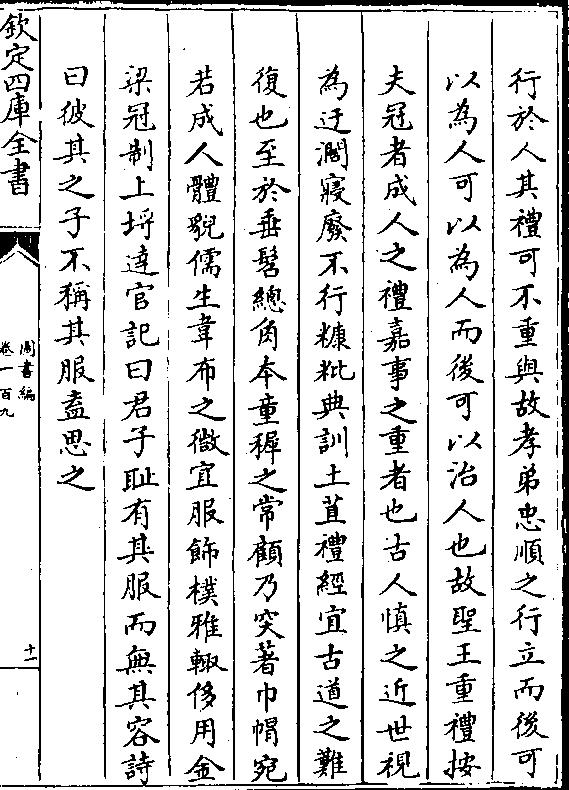 行於人其禮可不重與故孝弟忠順之行立而後可
以為人可以為人而後可以治人也故聖王重禮按
夫冠者成人之禮嘉事之重者也古人慎之近世視
為迂濶寢廢不行糠粃典訓土苴禮經宜古道之難
復也至於垂髫總角本童穉之常顧乃突著巾帽宛
若成人體貎儒生韋布之微宜服飾樸雅輙侈用金
梁冠制上埒逹官記曰君子耻有其服而無其容詩
曰彼其之子不稱其服盍思之
欽定四庫全書
圖書編
卷一百九
十一